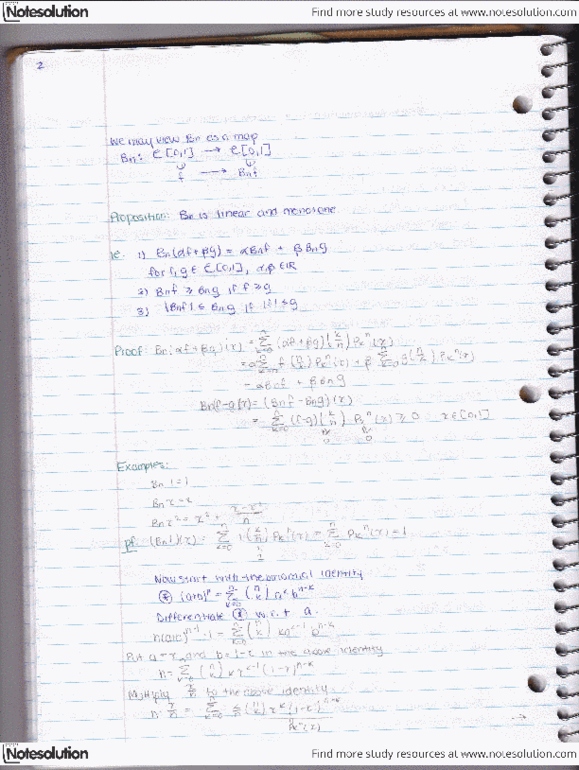 Notesolution
Find more study resources at www.notesolution.com
2
We may view Bn as a map
Bn: C[0,1] → C[0,1]
f → Bnf
Proposition: Bn is linear and monotone
ie. 1) Bn(αf+βg) = αBnf + βBng
for f,g ∈ C[0,1], α,β ∈ R
2) Bnf ≥ Bng if f ≥ g
3) |Bnf| ≤ Bng if |f| ≤ g
Proof: Bn(αf+βg)(x) = Σ (αf+βg)(k/n) Pk^n(x)
= α Σ f(k/n) Pk^n(x) + β Σ g(k/n) Pk^n(x)
= αBnf + βBng
(Bnf - Bng)(x)
= Σ (f-g)(k/n) Pk^n(x) ≥ 0 x ∈ [0,1]
Examples:
Bn 1 = 1
Bn x = x
Bn x² = x² + (x-x²)/n
Pf: (Bn1)(x) = Σ 1(k/n) Pk^n(x) = Σ Pk^n(x) = 1
Now start with the binomial identity
(a+b)^n = Σ (n k) a^k b^n-k
Differentiate w.r.t a.
n(a+b)^n-1 · 1 = Σ (n k) k a^k-1 b^n-k
Put a = x and b = 1-x in the above identity
n = Σ (n k) k x^k-1 (1-x)^n-k
Multiply x/n to the above identity
n · x/n = Σ k/n (n k) x^k (1-x)^n-k
Pk^n(x)
Notesolution
Find more study resources at www.notesolution.com